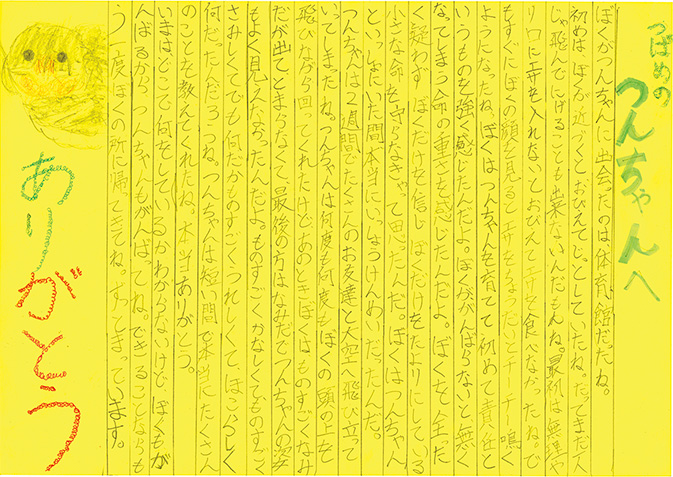 つばめの
つんちゃんへ
ぼくがつんちゃんに出会ったのは、体育館だったね。
初めは、ぼくが近づくとおびえてじっとしていたね。だってまだ一人
じゃ飛んでにげることも出来ないんだもんね。最初は無理や
り口にエサを入れないとおびえてエサを食べなかったね。で
もすぐにぼくの顔を見るとエサをちょうだいとチーチー鳴く
ようになったね。ぼくはつんちゃんを育てて初めて責任と
いうものを強く感じたんだよ。ぼくががんばらないと無く
なってしまう命の重さを感じたんだよ。ぼくを全った
く疑わずぼくだけを信じぼくだけをたよりにしている
小さな命を守らなきゃって思ったんだ。ぼくはつんちゃん
といっしょにいた間本当にいっしょうけんめいだったんだ。
つんちゃんは2週間でたくさんのお友達と大空へ飛び立って
いってしまったね。つんちゃんは何度も何度もぼくの頭の上を
飛びながら回ってくれたけどあのときぼくはものすごくなみ
だが出て、とまらなくて最後の方はなみだでつんちゃんの姿
もよく見えなかったんだよ。ものすごくかなしくてものすごく
さみしくてでも何だかものすごくうれしくてほこらしくて
何だったんだろうね。つんちゃんは短い間で本当にたくさん
のことを教えてくれたね。本当ありがとう。
いまはどこで何をしているかわからないけどぼくもが
んばるからつんちゃんもがんばってね。できることならも
う一度ぼくの所に帰ってきてね。ずっとまっています。
ありがとう